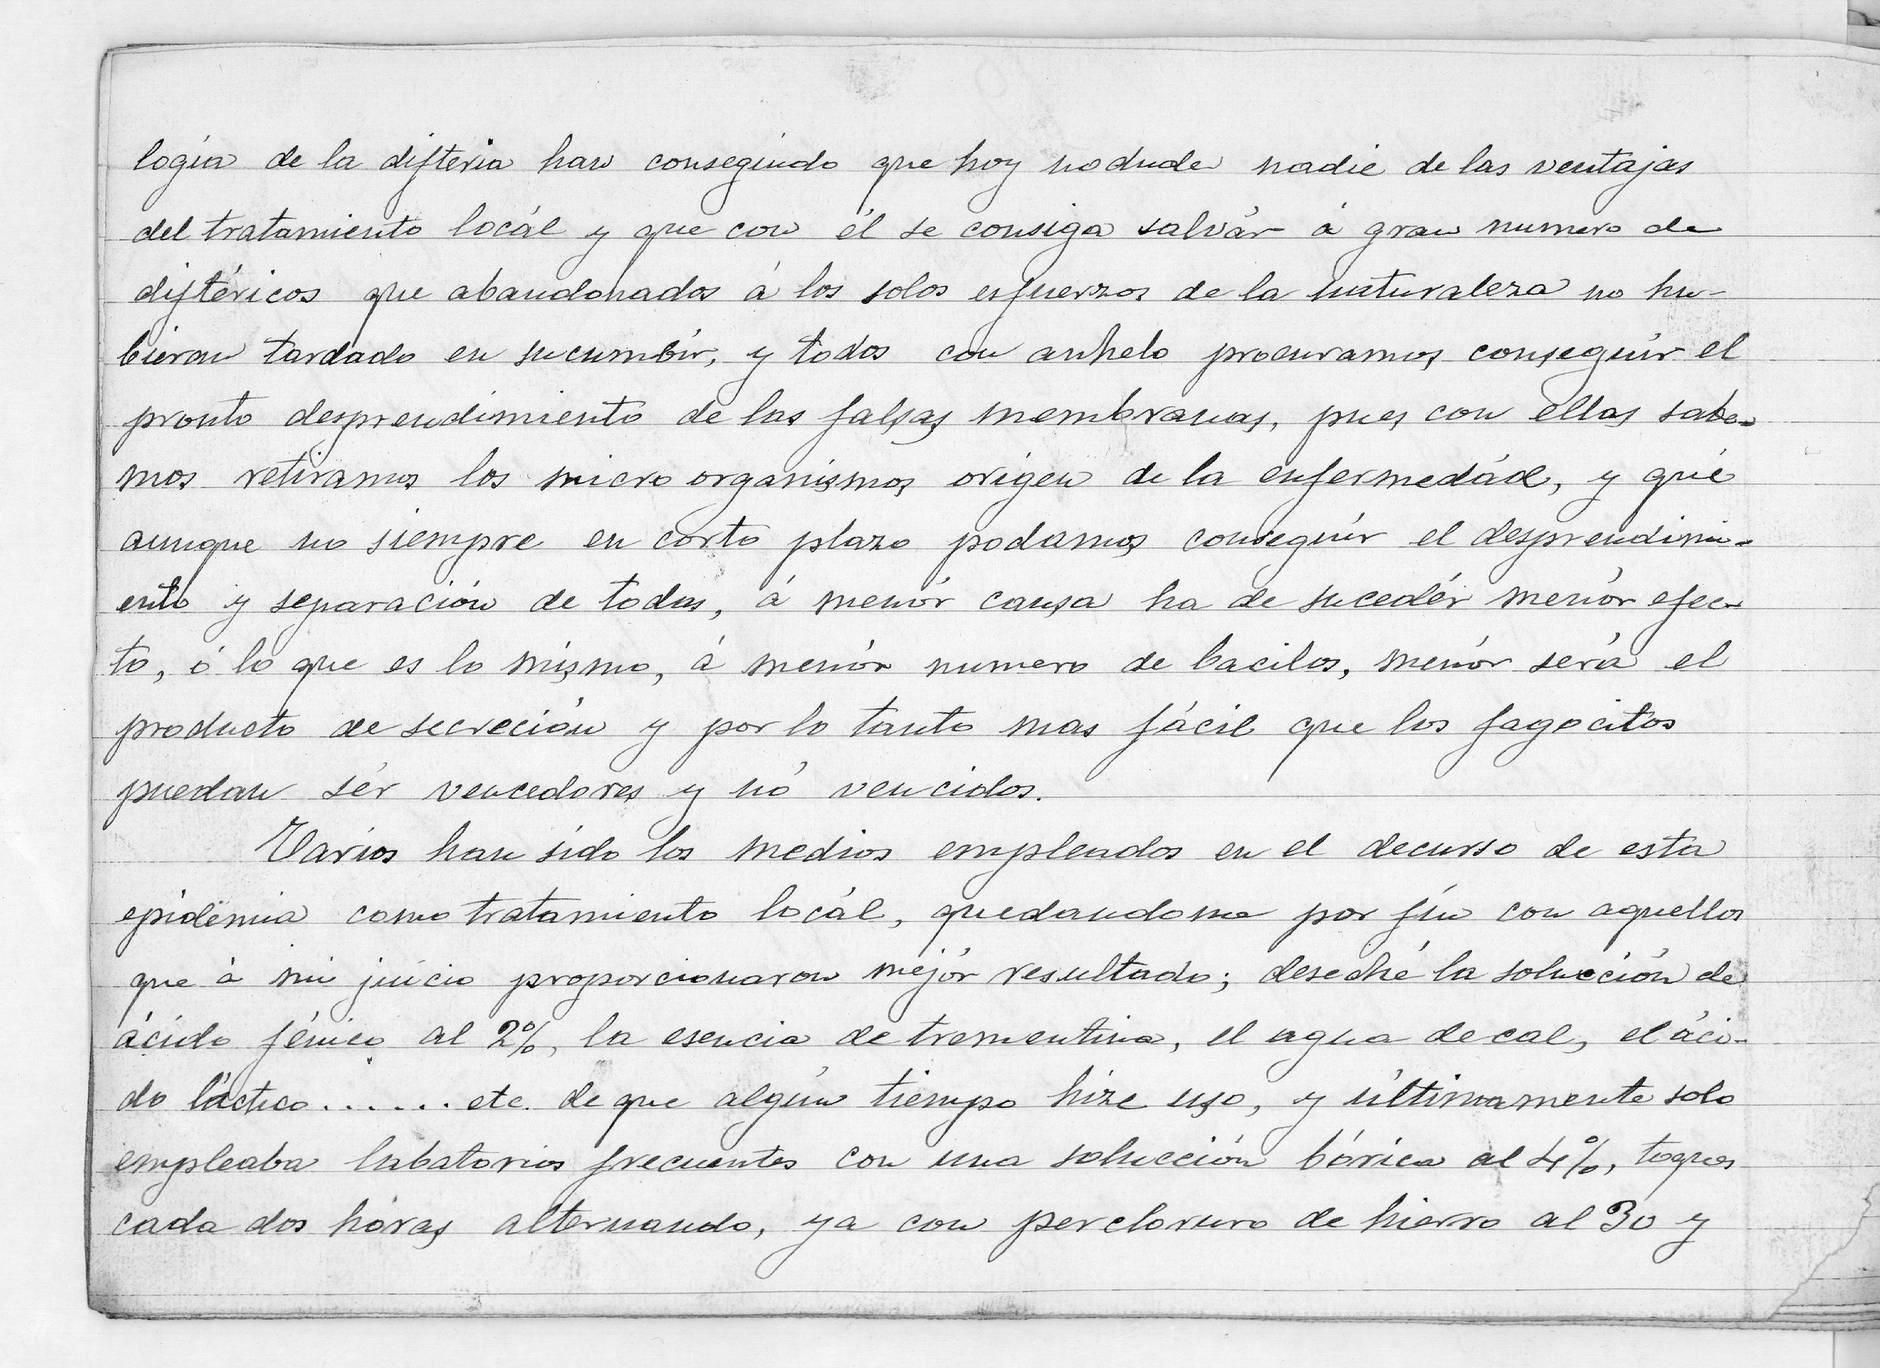 logía de la difteria han conseguido que hoy no dude nadie de las ventajas
del tratamiento locál y que con él se consiga salvár á gran numero de
diftéricos que abandonados á los solos esfuerzos de la naturaleza no hu-
bieran tardado en sucumbír, y todos con anhelo procuramos conseguír el
pronto desprendimiento de las falsas membranas, pues con ellas sabe-
mos retiramos los micro organismos origen de la enfermedád, y qué
aunque no siempre en corto plazo podamos conseguír el desprendimi-
ento y separación de todas, á menór causa ha de sucedér menór efec-
to, ó lo que es lo mismo, á menór numero de bacilos, menór será el
producto de secreción y por lo tanto mas fácil que los fagocitos
puedan sér vencedores y nó vencidos.
Varios han sido los medios empleados en el decurso de esta
epidémia como tratamiento locál, quedandome por fín con aquellos
que á mi juicio proporcionaron mejór resultado; deseché la solucción de
ácido fénico al 2%, la esencia de trementina, el agua de cal, el áci-
do láctico...... etc. de que algún tiempo hize uso, y últimamente solo
empleaba labatorios frecuentes con una solucción bórica al 4%, toques
cada dos hóras alternando, ya con percloruro de hierro al 30 y